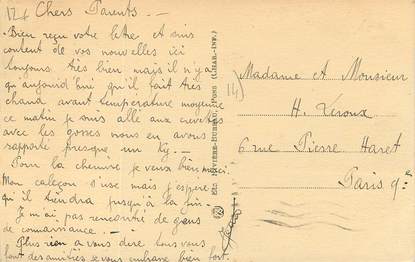 124 Chers Parents. —
Bien reçu votre lettre et suis
content de vos nouvelles ici
toujours très bien mais il n'y a
qu'aujourd'hui qu'il fait très
chaud avant température moyenne
ce matin je suis allé aux crevettes
avec les gosses nous en avons
rapporté presque un Kg. —
Pour la chemise je veux bien merci.
Mon caleçon s'use mais j'espère
qu'il tiendra jusqu'à la fin.
Je m'ai pas rencontré de gens
de connaissance. —
Plus rien a vous dire tous vous
font des amitiés je vous embrasse bien fort.
PONS (CHAR.-INF.)
14)
Madame et Monsieur
H. Leroux
6 rue Pierre Haret
Paris 9e